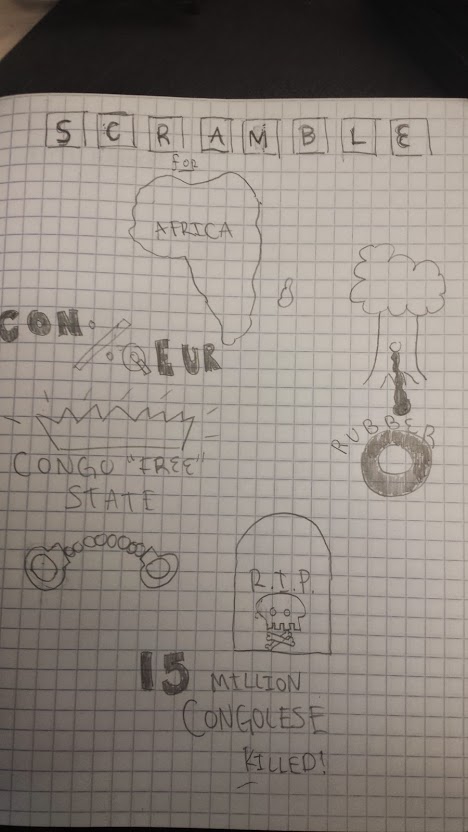 SCRAMBLE
for
AFRICA
CON
QEUR
RUBBER
CONGO "FREE"
STATE
R.I.P.
15 MILLION
CONGOLESE
KILLED!